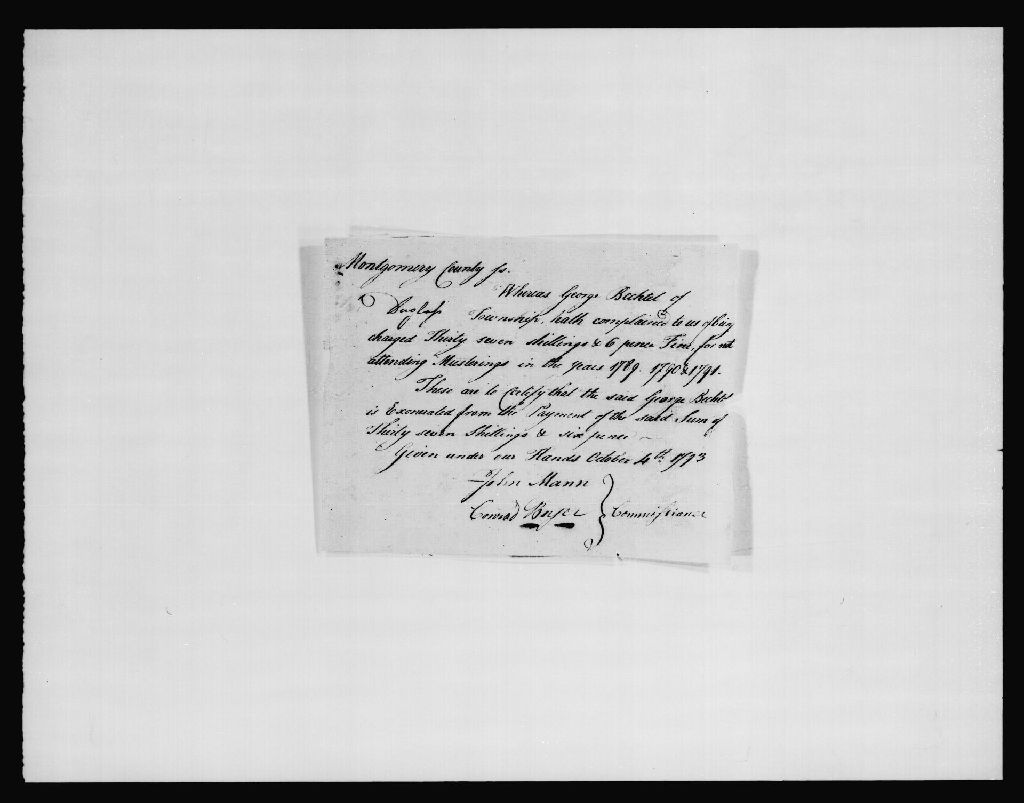 Montgomery County ss.
Whereas George Bechtel of
Duglass Township, hath complained to us of being
charged Thirty seven shillings & 6 pence Fine, for not
attending Musterings in the years 1789. 1790 & 1791.
These are to Certify that the said George Bechtel
is Exonerated from the Payment of the said Sum of
Thirty seven Shillings & six pence –
Given under our Hands October 4th 1793
John Mann
Conrad Boyer } Commissioners